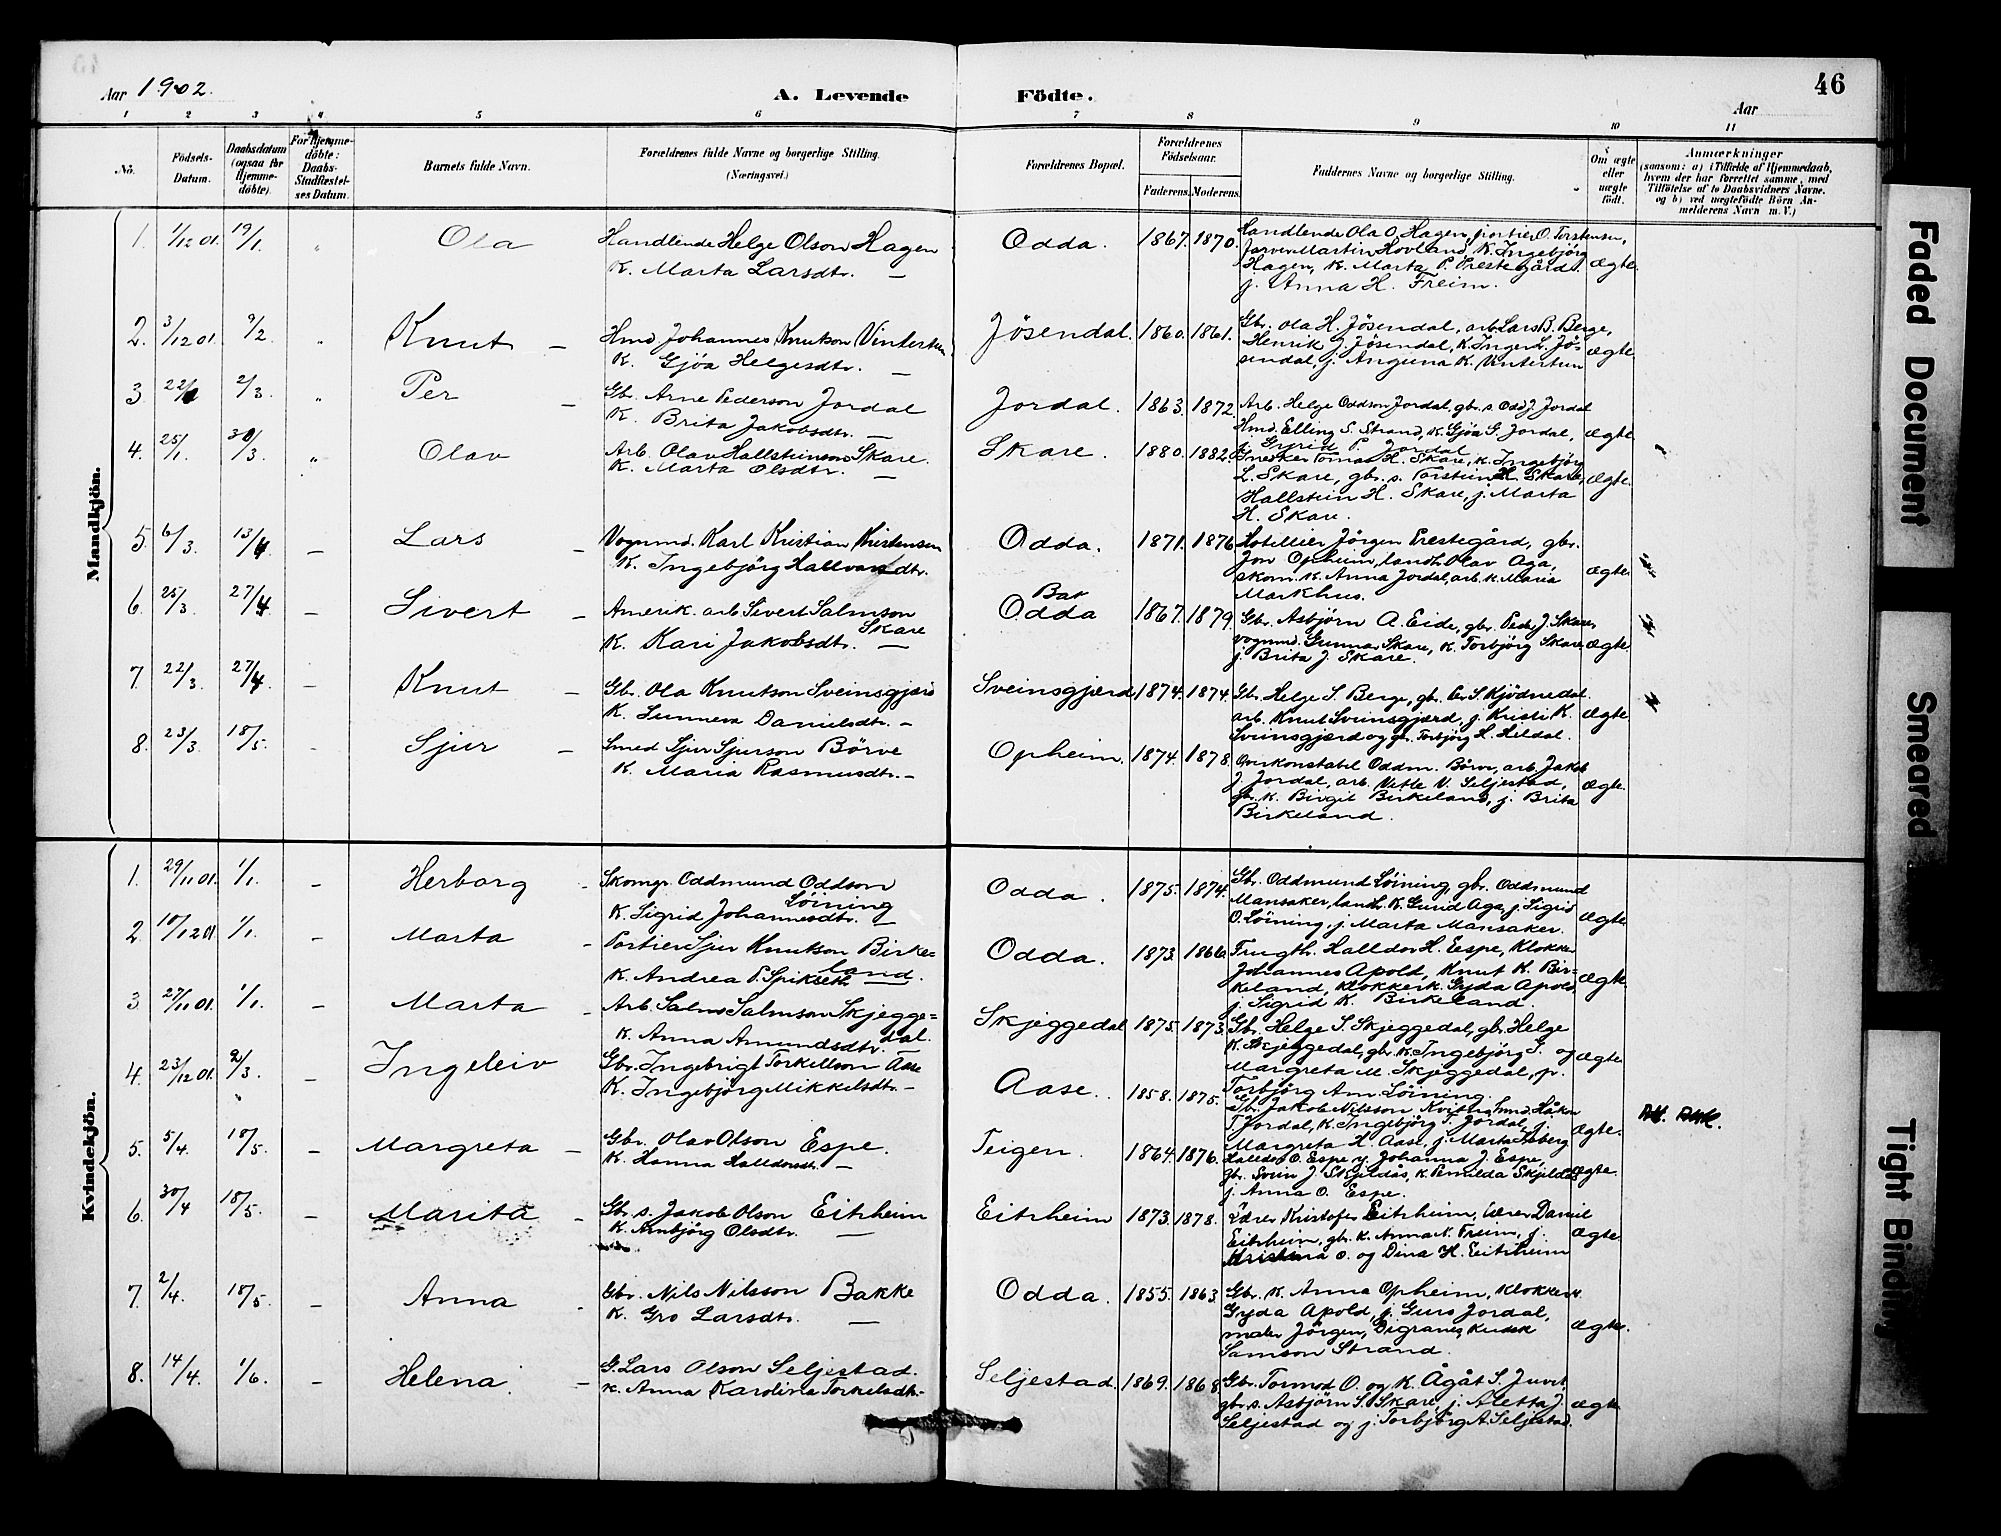 Aar 1902.
A. Levende Födte.
Aar
46
1 2 3 4 5 6 7 8 9 10 11
No.
Födsels-Datum.
Daabsdatum (ogsaa for Hjemme-döbte).
For Hjemme-döbte: Daabs-Stadfæstel-ses Datum.
Barnets fulde Navn.
Forældrenes fulde Navne og borgerlige Stilling. (Næringsvei.)
Forældrenes Bopæl.
Forældrenes Födselsaar.
Faderens. Moderens.
Faddernes Navne og borgerlige Stilling.
Om ægte eller uægte födt.
Anmærkninger
(saasom: a) i Tilfælde af Hjemmedaab, hvem der har forrettet samme, med Tilföielse af to Daabsvidners Navne, og b) ved uægtefödte Börn An-melderens Navn m. V.)
Mandkjön.
1. 1/12 01. 19/1. " Ola
Handlende Helge Olson Hagen
K. Marta Larsdtr. —
Odda. 1867. 1870.
Handlende Ola O. Hagen, portier O. Torstensen,
Martin Hovland, K. Ingebjörg
Hagen, K. Marta P. Prestegård.
j. Anna H. Freim.
ægte.
2. 3/12 01. 9/2. " Knut —
Hmd Johannes Knutson Vintertun
K. Gjöa Helgesdtr. —
Jösendal. 1860. 1861.
Gbr. Ola H. Jösendal, arb. Lars B. Berge,
Henrik J. Jösendal, K. Inger L. Jö-
sendal, j. Anguna K. Vintertun
ægte.
3. 22/1 2/3. " Per —
Gbr. Arne Pederson Jordal
K. Brita Jakobsdtr. —
Jordal. 1863. 1872.
Arb. Helge Oddson Jordal, gbr. s. Odd J. Jordal
Hmd. Elling S. Strand, K. Gjöa G. Jordal,
j. Gyrid P. Jordal
ægte.
4. 25/1. 30/3. " Olav
Arb. Olav Hallsteinson Skare.
K. Marta Olsdtr. —
Skare. 1880. 1882.
Tomas H. Skare, K. Ingebjörg
L. Skare, gbr. s. Torstein H. Skare,
Hallstein H. Skare, j. Marta
H. Skare.
ægte.
5. 6/3. 13/4. — Lars —
Vognmd. Karl Kristian Kristensen
K. Ingebjörg Hallvarsdtr.
Odda. 1871. 1876
Hotellier Jörgen Prestegård, gbr.
Jon Opheim, landh. Olav Aga,
skom. K. Anna Jordal, arb. K. Maria
Markhus.
ægte.
6. 25/3. 27/4. — Sivert —
Amerik. arb. Sivert Salmson
Skare
K. Kari Jakobsdtr. —
Bar
Odda 1867. 1879.
Gbr. Asbjörn A. Eide, gbr. Peder J. Skare,
vognmd. Gunnar Skare, K. Torbjörg Skare
j. Brita J. Skare.
ægte.
7. 22/3. 27/4. — Knut —
Gbr. Ola Knutson Sveinsgjærd
K. Sunneva Danielsdtr. —
Sveinsgjærd 1874. 1874.
Gbr. Helge S. Berge, gbr. Per S. Kjödnedal.
arb. Knut Sveinsgjærd, j. Kristi K.
Sveinsgjærd og gr. Torbjörg H. Hildal.
ægte.
8. 23/3. 18/5. — Sjur —
Smed Sjur Sjurson Börve
K. Maria Rasmusdtr. —
Opheim. 1874. 1878.
Overkonstabel Oddm. Börve, arb. Jakob
J. Jordal, arb. Vetle V. Seljestad,
gbr. K. Birgit Birkeland, j. Brita
Birkeland.
ægte.
Kvindekjön.
1. 29/11 01. 1/1. — Herborg —
Skomgr. Oddmund Oddson
Löining
K. Sigrid Johannesdtr. —
Odda. 1875. 1874.
Gbr. Oddmund Löining, gbr. Oddmund
Mansaker, landh. K. Gunid Aga, j. Sigrid
O. Löining, j. Marta Mansaker.
ægte.
2. 10/12 01 1/1. — Marta —
Portier Sjur Knutson Birke=
land.
K. Andrea P. —
Odda. 1873. 1866.
Frugth. Halldor H. Espe, Klokker
Johannes Apold, Knut K. Bir=
keland, Klokkerk. Gyda Apold
j. Sigrid K. Birkeland.
ægte.
3 27/11 01. 1/1. — Marta —
Arb. Salmo Salmson Skjegge=
dal.
K. Anna Amundsdtr.
Skjeggedal 1875. 1873.
Gbr. Helge S. Skjeggedal, gbr. Helge
K. Skjeggedal, gbr. K. Ingebjörg S. og
Margreta M. Skjeggedal, p.
Torbjörg Am. Löining.
ægte
4. 23/12 01. 2/3. — Ingeleiv
Gbr. Ingebrigt Torkellson Aase
K. Ingebjörg Mikkelsdtr. —
Aase. 1858. 1875.
Gbr. Jakob Nilsson Hmd. Håkon
T. Jordal, K. Ingebjörg T. Jordal, j.
Margreta H. Aase, j. Marta
ægte.
5. 5/4. 18/5. — Margreta —
Gbr. Olav Olson Espe.
K. Hanna Halldorsdt. —
Teigen. 1864. 1876.
Halldor O. Espe, Johanna J. Espe,
gbr. Svein J. Skjeldås, K. Pernilda Skjeldås
j. Anna O. Espe.
ægte.
6. 30/4 18/5. — Marita —
Gbr. s. Jakob Olson Eitrheim
K. Arnbjörg Olsdtr. —
Eitrheim 1873. 1878.
Kristofer Eitrheim, Lærer Daniel
Eitrheim, gbr. K. Anna N. Freim, j.
Kristina O. og Dina H. Eitrheim
ægte.
7. 2/4. 18/5. — Anna —
Gbr. Nils Nilsson Bakke
K. Gro Larsdtr. —
Odda. 1855. 1863.
Gbr. K. Anna Opheim, Klokkerk.
Gyda Apold, j. Guro Jordal,
maler Jörgen Digranes, Kusk
Samson Strand.
ægte.
8. 14/4. 1/6. — Helena. —
G. Lars Olson Seljestad.
K. Anna Karolina Torkelsdtr.
Seljestad. 1869. 1868.
Gbr. Tormod O. og K. Ågåt S. Juvet,
gbr. s. Asbjörn S. Skare, j. Aletta J.
Seljestad og j. Torbjörg A. Seljestad.
ægte
Faded Document
Smeared
Tight Binding